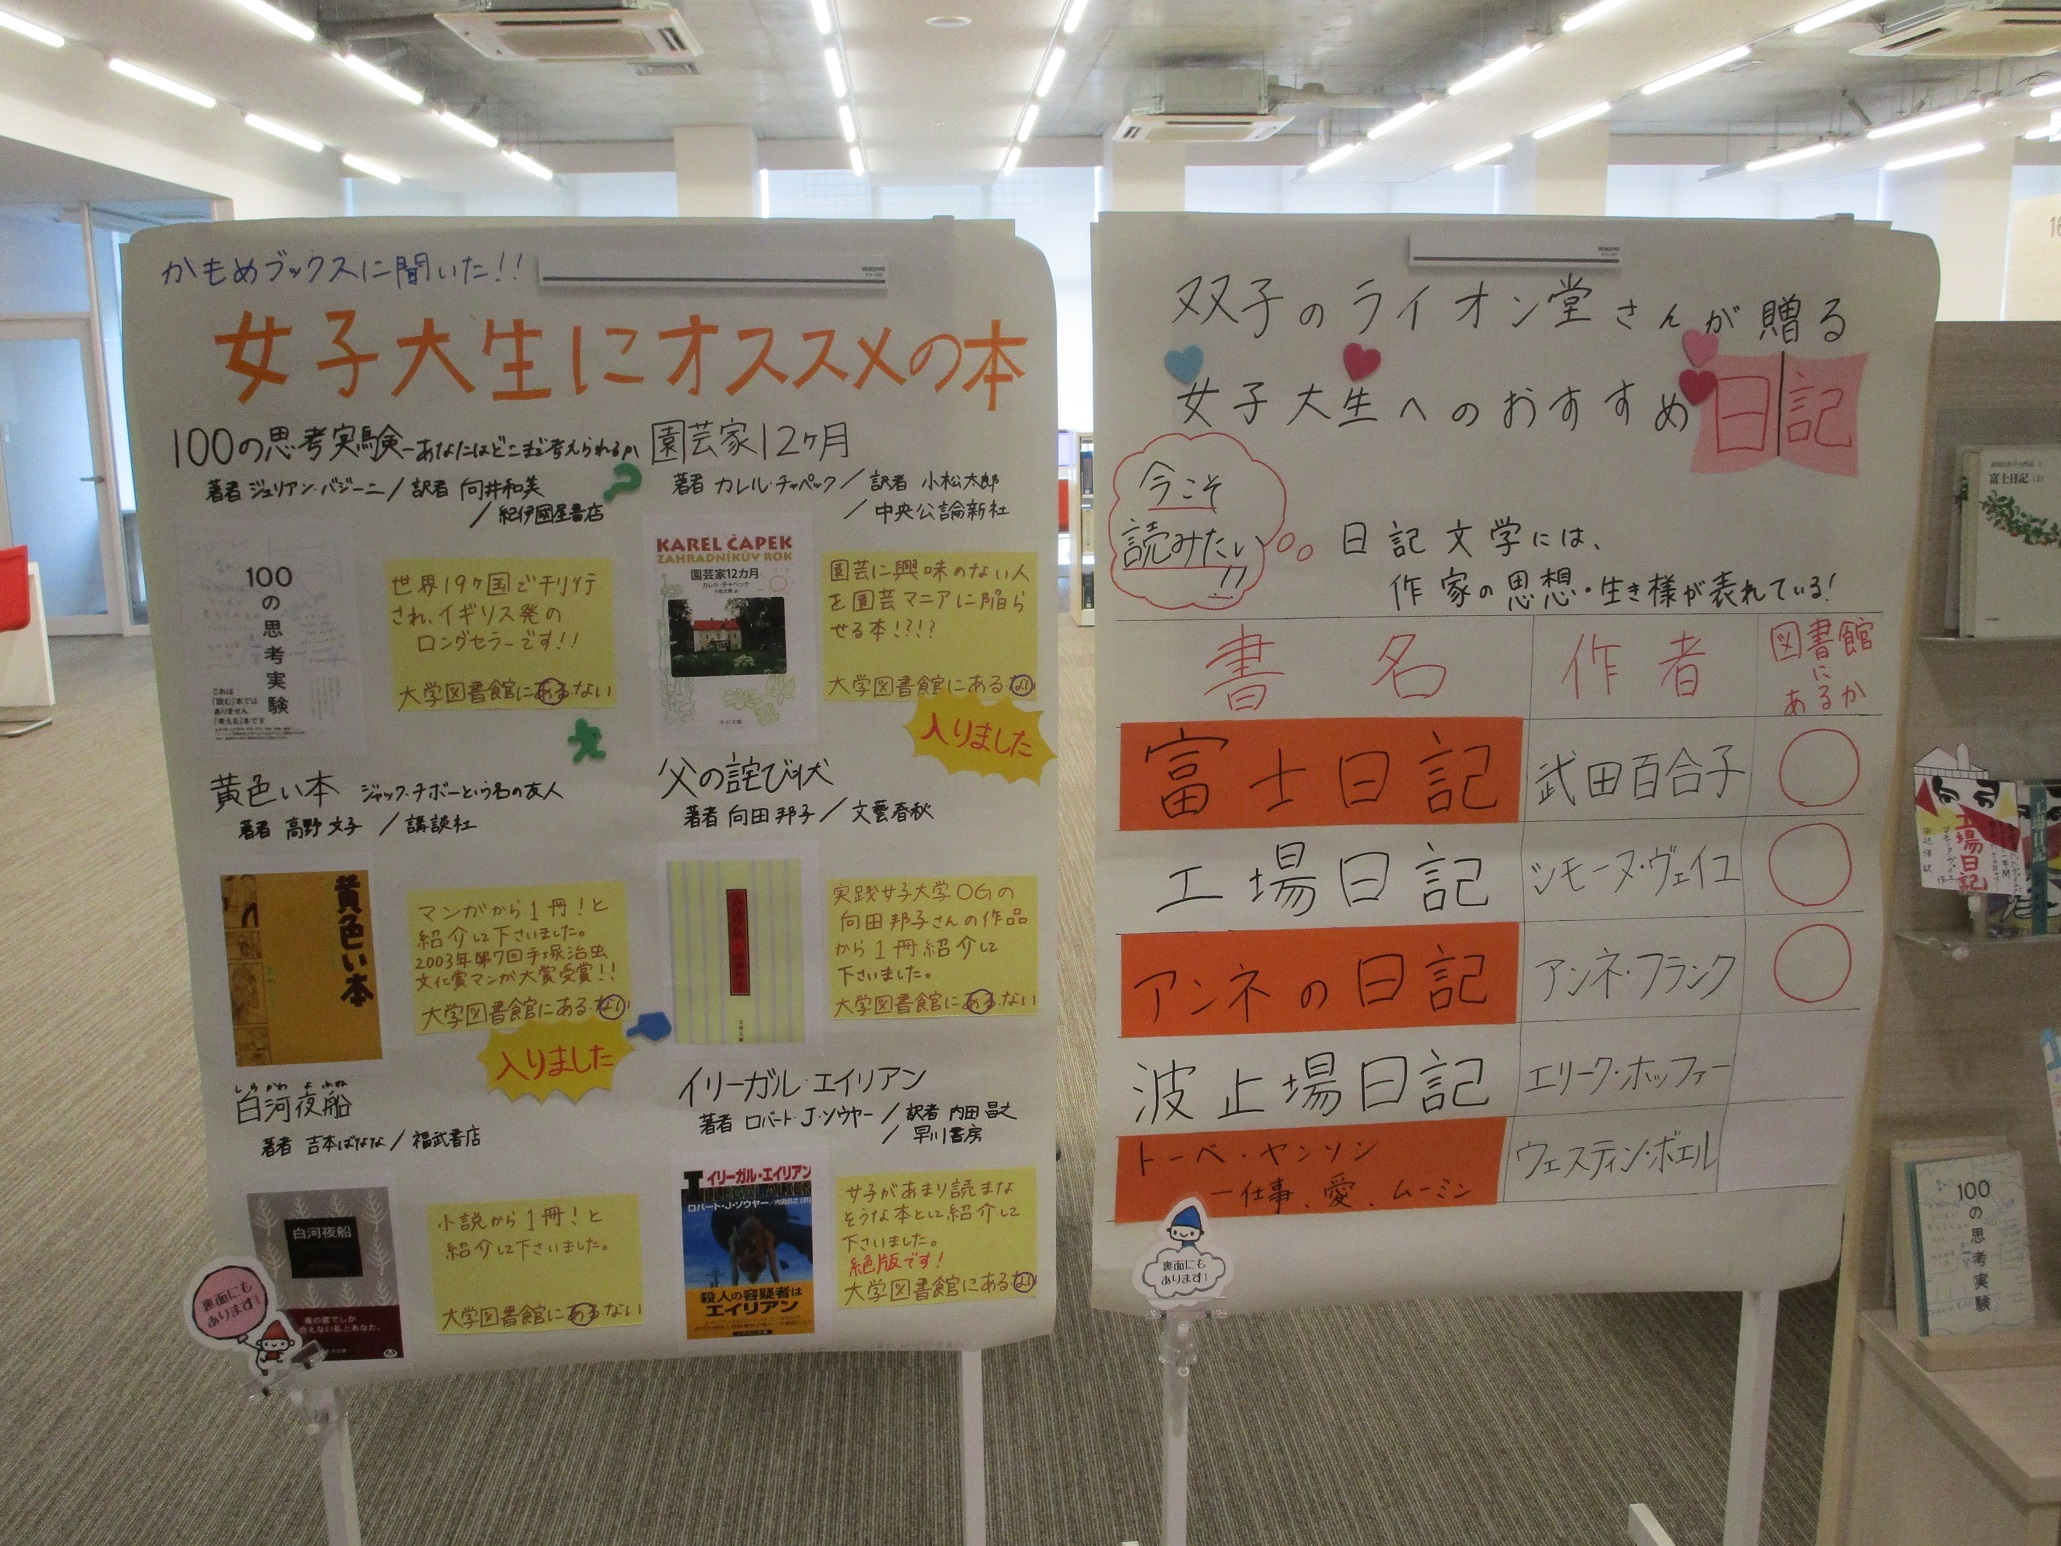 かもめブックスに聞いた!!
女子大生にオススメの本
100の思考実験-あなたはどこまで考えられるか
著者 ジュリアン・バジーニ/訳者 向井和美
/紀伊國屋書店
100の思考実験
これは
「読む」本では
ありません
「考える」本です
世界19ヶ国で刊行
され、イギリス発の
ロングセラーです!!
大学図書館にある・ない
園芸家12ヶ月
著者 カレル・チャペック/訳者 小松太郎
/中央公論新社
KAREL ČAPEK
ZAHRADNÍKŮV ROK
園芸家12カ月
カレル・チャペック
中公文庫
園芸に興味のない人
を園芸マニアに陥ら
せる本!?!?
大学図書館にある・ない
入りました
黄色い本 ジャック・チボーという名の友人
著者 高野文子/講談社
黄色い本
マンガから1冊!と
紹介して下さいました。
2003年第7回手塚治虫
文化賞マンガ大賞受賞!!
大学図書館にある・ない
入りました
父の詫び状
著者 向田邦子/文藝春秋
実践女子大学OGの
向田邦子さんの作品
から1冊紹介して
下さいました。
大学図書館にある・ない
しらかわ よふね
白河夜船
著者 吉本ばなな/福武書店
白河夜船
小説から1冊!と
紹介して下さいました。
大学図書館にある・ない
裏面にも
あります!
イリーガル・エイリアン
著者 ロバート・J・ソウヤー/訳者 内田昌之
/早川書房
イリーガル・エイリアン
ILLEGAL ALIEN
ロバート・J・ソウヤー
殺人の容疑者は
エイリアン
女子があまり読まな
そうな本として紹介して
下さいました。
絶版です!
大学図書館にある・ない
双子のライオン堂さんが贈る
女子大生へのおすすめ日記
今こそ
読みたい
!!
日記文学には、
作家の思想・生き様が表れている!
書名 作者 図書館にあるか
富士日記 武田百合子 ○
工場日記 シモーヌ・ヴェイユ ○
アンネの日記 アンネ・フランク ○
波止場日記 エリーク・ホッファー
トーベ・ヤンソン ウェスティン・ボエル
―仕事、愛、ムーミン
裏面にも
あります!
富士日記
工場日記
100の思考実験